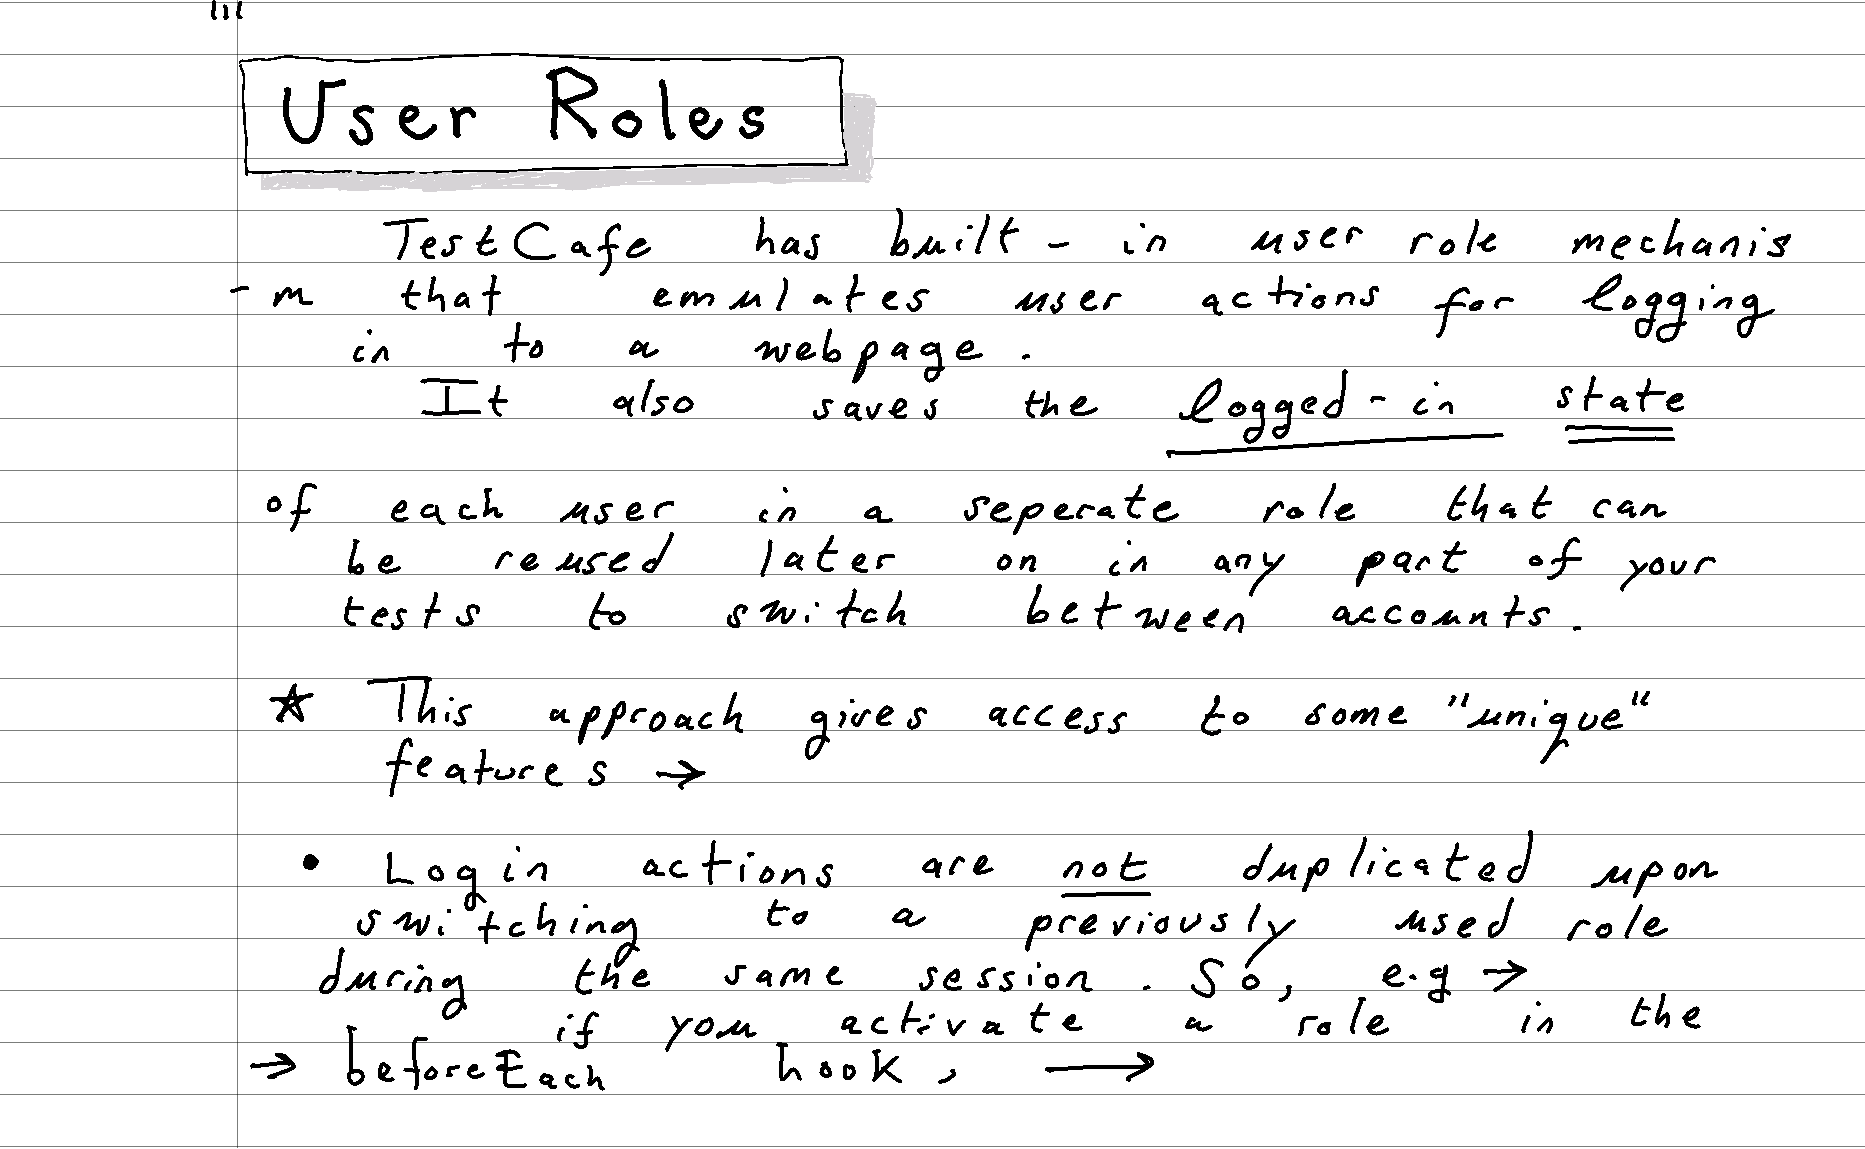 User Roles
TestCafe has built - in user role mechanis
- m that emulates user actions for logging
in to a webpage.
It also saves the logged - in state
of each user in a seperate role that can
be reused later on in any part of your
tests to switch between accounts.
☆ This approach gives access to some "unique"
features →
• Login actions are not duplicated upon
switching to a previously used role
during the same session. So, e.g →
if you activate a role in the
→ beforeEach hook, →